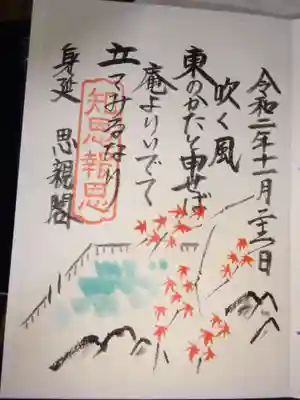 令和二年十一月
吹く風
東のかたと申せば
庵よりいでて
立てみるなり
知恩報恩
身延 思親閣